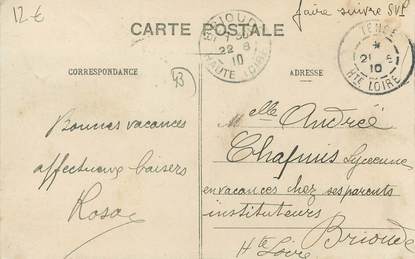 12 €
faire suivre SVP
CARTE POSTALE
BRIOUDE
22 8
10
HAUTE LOIRE
TENCE
*
21 8
10
HTE LOIRE
CORRESPONDANCE
ADRESSE
Bonnes vacances
affectueux baisers
Rosa
Melle Andrée
Lycéenne
en vacances chez ses parents
instituteurs
Brioude
Hte Loire